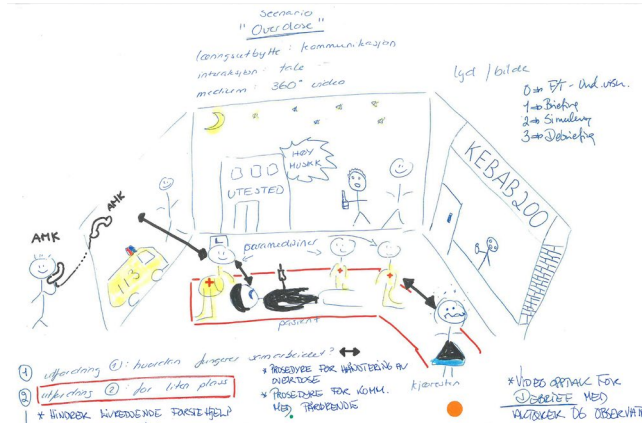 Scenario
"Overdose"
læringsutbytte : kommunikasjon
interaksjon : tale
medium : 360° video
lyd / bilde
0 => F/T - Und.
1 => Briefing
2 => Simulering
3 => Debriefing
HØY
MUSIKK
UTESTED
KEBAB 200
AMK
AMK
113
L
paramedisiner
pasient
kjæresten
① utfordring ①: hvordan fungerer samarbeidet?
② utfordring ②: for liten plass
* HINDRER LIVREDDENDE FØRSTEHJELP
* PROSEDYRE FOR HÅNDTERING AV
OVERDOSE
* PROSEDYRE FOR KOMM.
MED PÅRØRENDE
* VIDEO OPPTAK FOR
DEBRIEF MED
AKTØRER OG